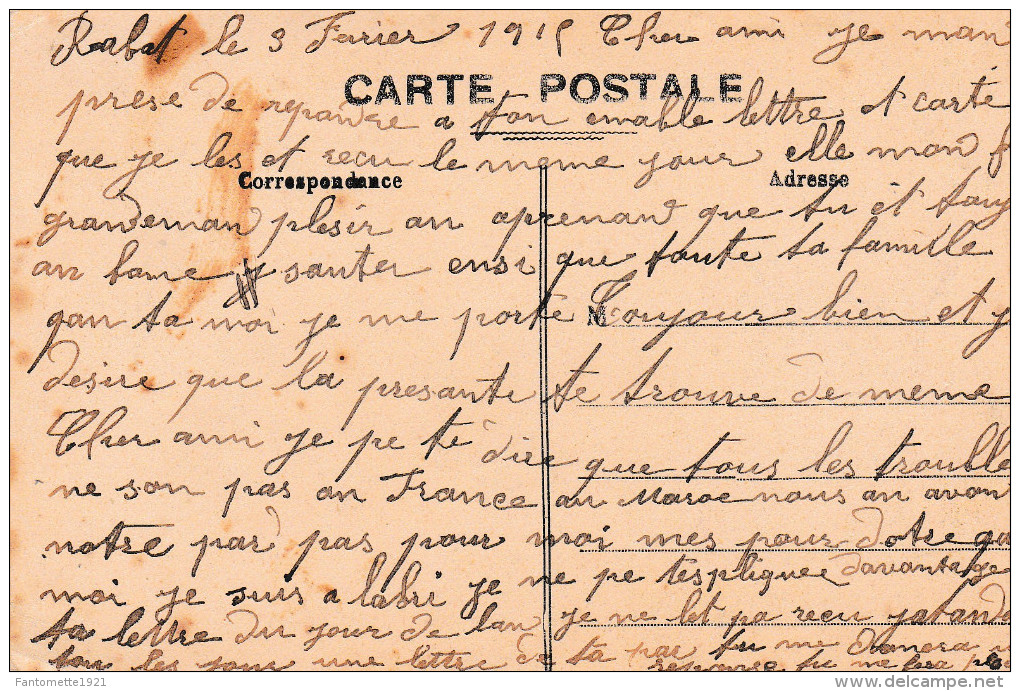 Rabat le 3 Ferier 1915 Cher ami je man
CARTE POSTALE
prese de repandre a ton emable lettre et carte
que je les et recu le meme jour elle mon f
Correspondance
Adresse
grandeman plesir an aprenand que tu et touj
an bone santer ensi que toute ta famille
qan ta moi je me porte Toujour bien et j
desire que la presante te trouve de meme
Cher ami je pe te dire que tous les trouble
ne son pas an France au Maroc nous an avon
notre pard pas pour moi mes pour dotre qa
moi je suis a labri je ne pe tespliquee davantage
ta lettre du jour de lan je ne let pa recu jatand
tou les jour une lettre de ta par tu me donera
reponse tu me fera
© Fantomette1921
delcampe.net